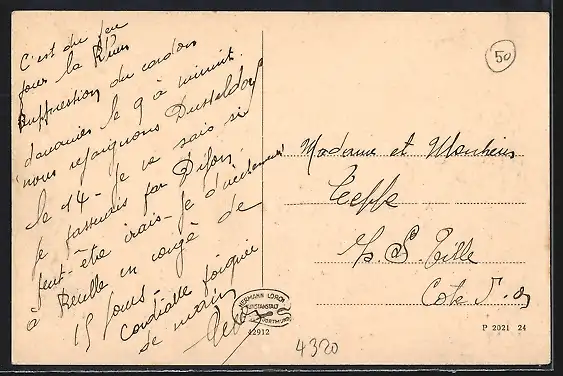 C'est du feu
pour la Rhur
Suppression du cordon
douanier le 9 à minuit.
nous rejoignons Dusseldorf
le 14 - je ne sais si
je passerais par Dijon.
peut-être irais-je directement
à Reulle en congé de
15 jours -
Cordiale poignée
de main
Madame et Monsieur
Is S. Tille
Côte d'or
50
HERMANN LORCH
KUNSTANSTALT
DORTMUND
42912
P 2021 24
4320